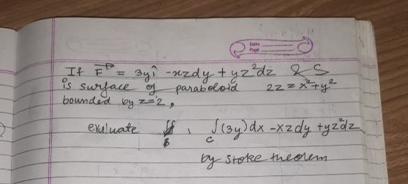 If F = 3yî - xzdy + yz²dz & S
is surface of paraboloid 2z = x²+y²
bounded by z=2,
evaluate ∬ , ∫(3y)dx - xzdy + yz²dz
S C
by stoke theorem